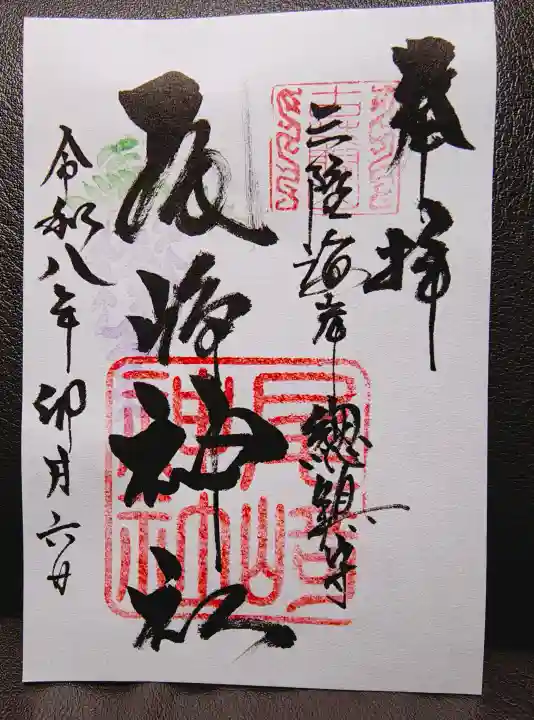 奉拝
三陸海岸總鎮守
尾崎神社
尾崎神社
令和八年卯月六日